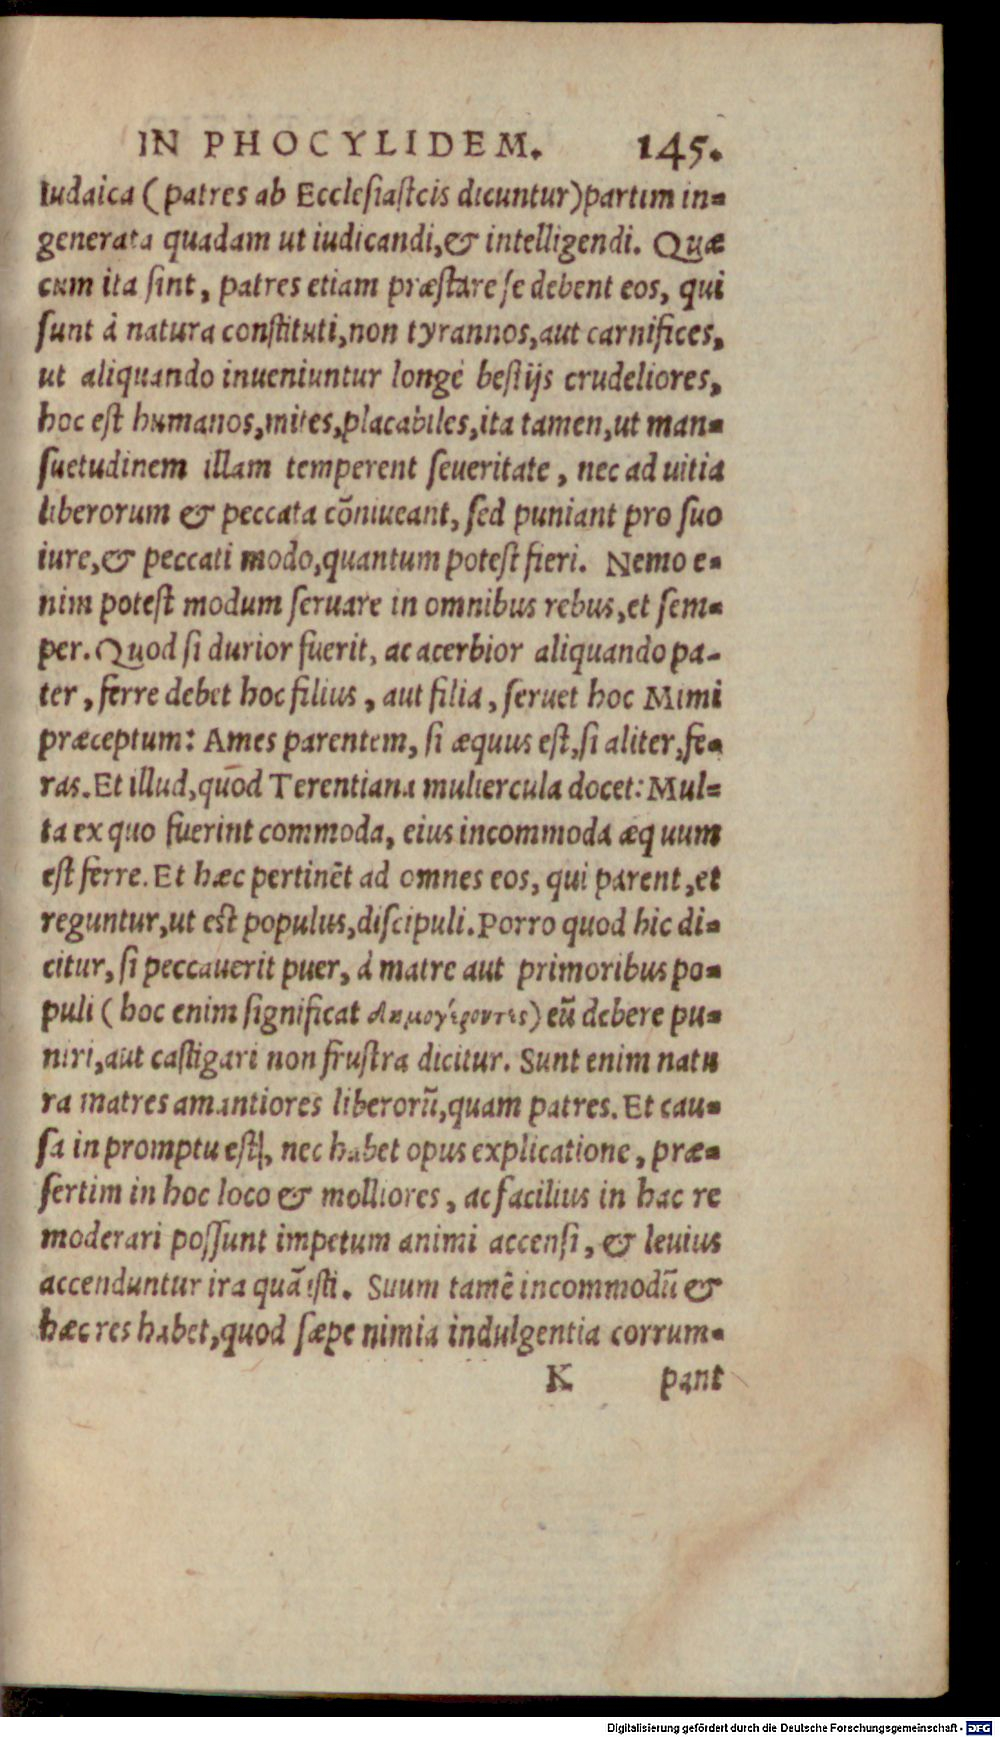 IN PHOCYLIDEM. 145.
Iudaica (patres ab Ecclesiastcis dicuntur) partim in-
generata quadam ut iudicandi, & intelligendi. Quæ
cum ita sint, patres etiam præstare se debent eos, qui
sunt à natura constituti, non tyrannos, aut carnifices,
ut aliquando inueniuntur longè bestijs crudeliores,
hoc est humanos, mites, placabiles, ita tamen, ut man-
suetudinem illam temperent seueritate, nec ad uitia
liberorum & peccata cõniueant, sed puniant pro suo
iure, & peccati modo, quantum potest fieri. Nemo e-
nim potest modum seruare in omnibus rebus, et sem-
per. Quod si durior fuerit, ac acerbior aliquando pa-
ter, ferre debet hoc filius, aut filia, seruet hoc Mimi
præceptum: Ames parentem, si æquus est, si aliter, fe-
ras. Et illud, quod Terentiana muliercula docet: Mul-
ta ex quo fuerint commoda, eius incommoda æquum
est ferre. Et hæc pertinẽt ad omnes eos, qui parent, et
reguntur, ut est populus, discipuli. Porro quod hic di-
citur, si peccauerit puer, à matre aut primoribus po-
puli (hoc enim significat δημογέροντες) eũ debere pu-
niri, aut castigari non frustra dicitur. Sunt enim natu
ra matres amantiores liberorũ, quam patres. Et cau-
sa in promptu est, nec habet opus explicatione, præ-
sertim in hoc loco & molliores, ac facilius in hac re
moderari possunt impetum animi accensi, & leuius
accenduntur ira quã isti. Suum tamẽ incommodũ &
hæc res habet, quod sæpe nimia indulgentia corrum-
K pant
Digitalisierung gefördert durch die Deutsche Forschungsgemeinschaft - DFG